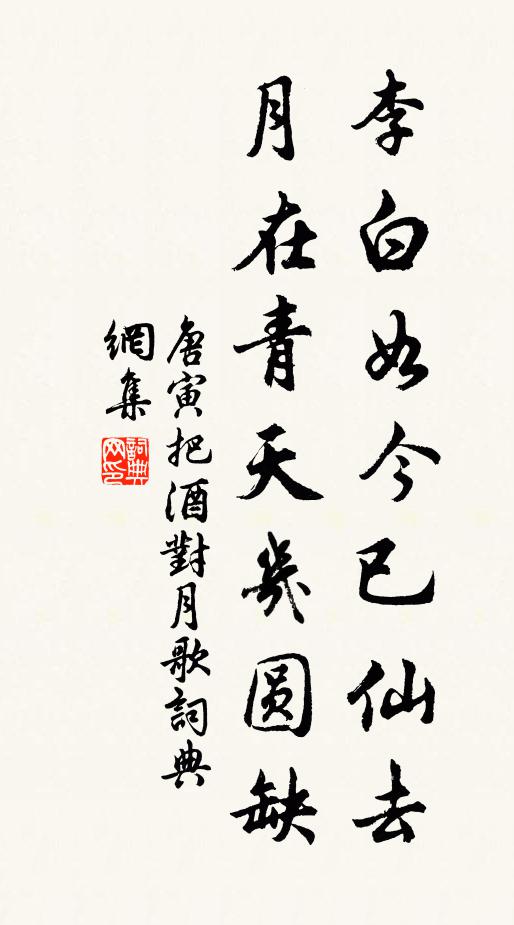 李白如今已仙去
月在青天幾圓缺
唐寅把酒對月歌詞典
網集
詞典網印